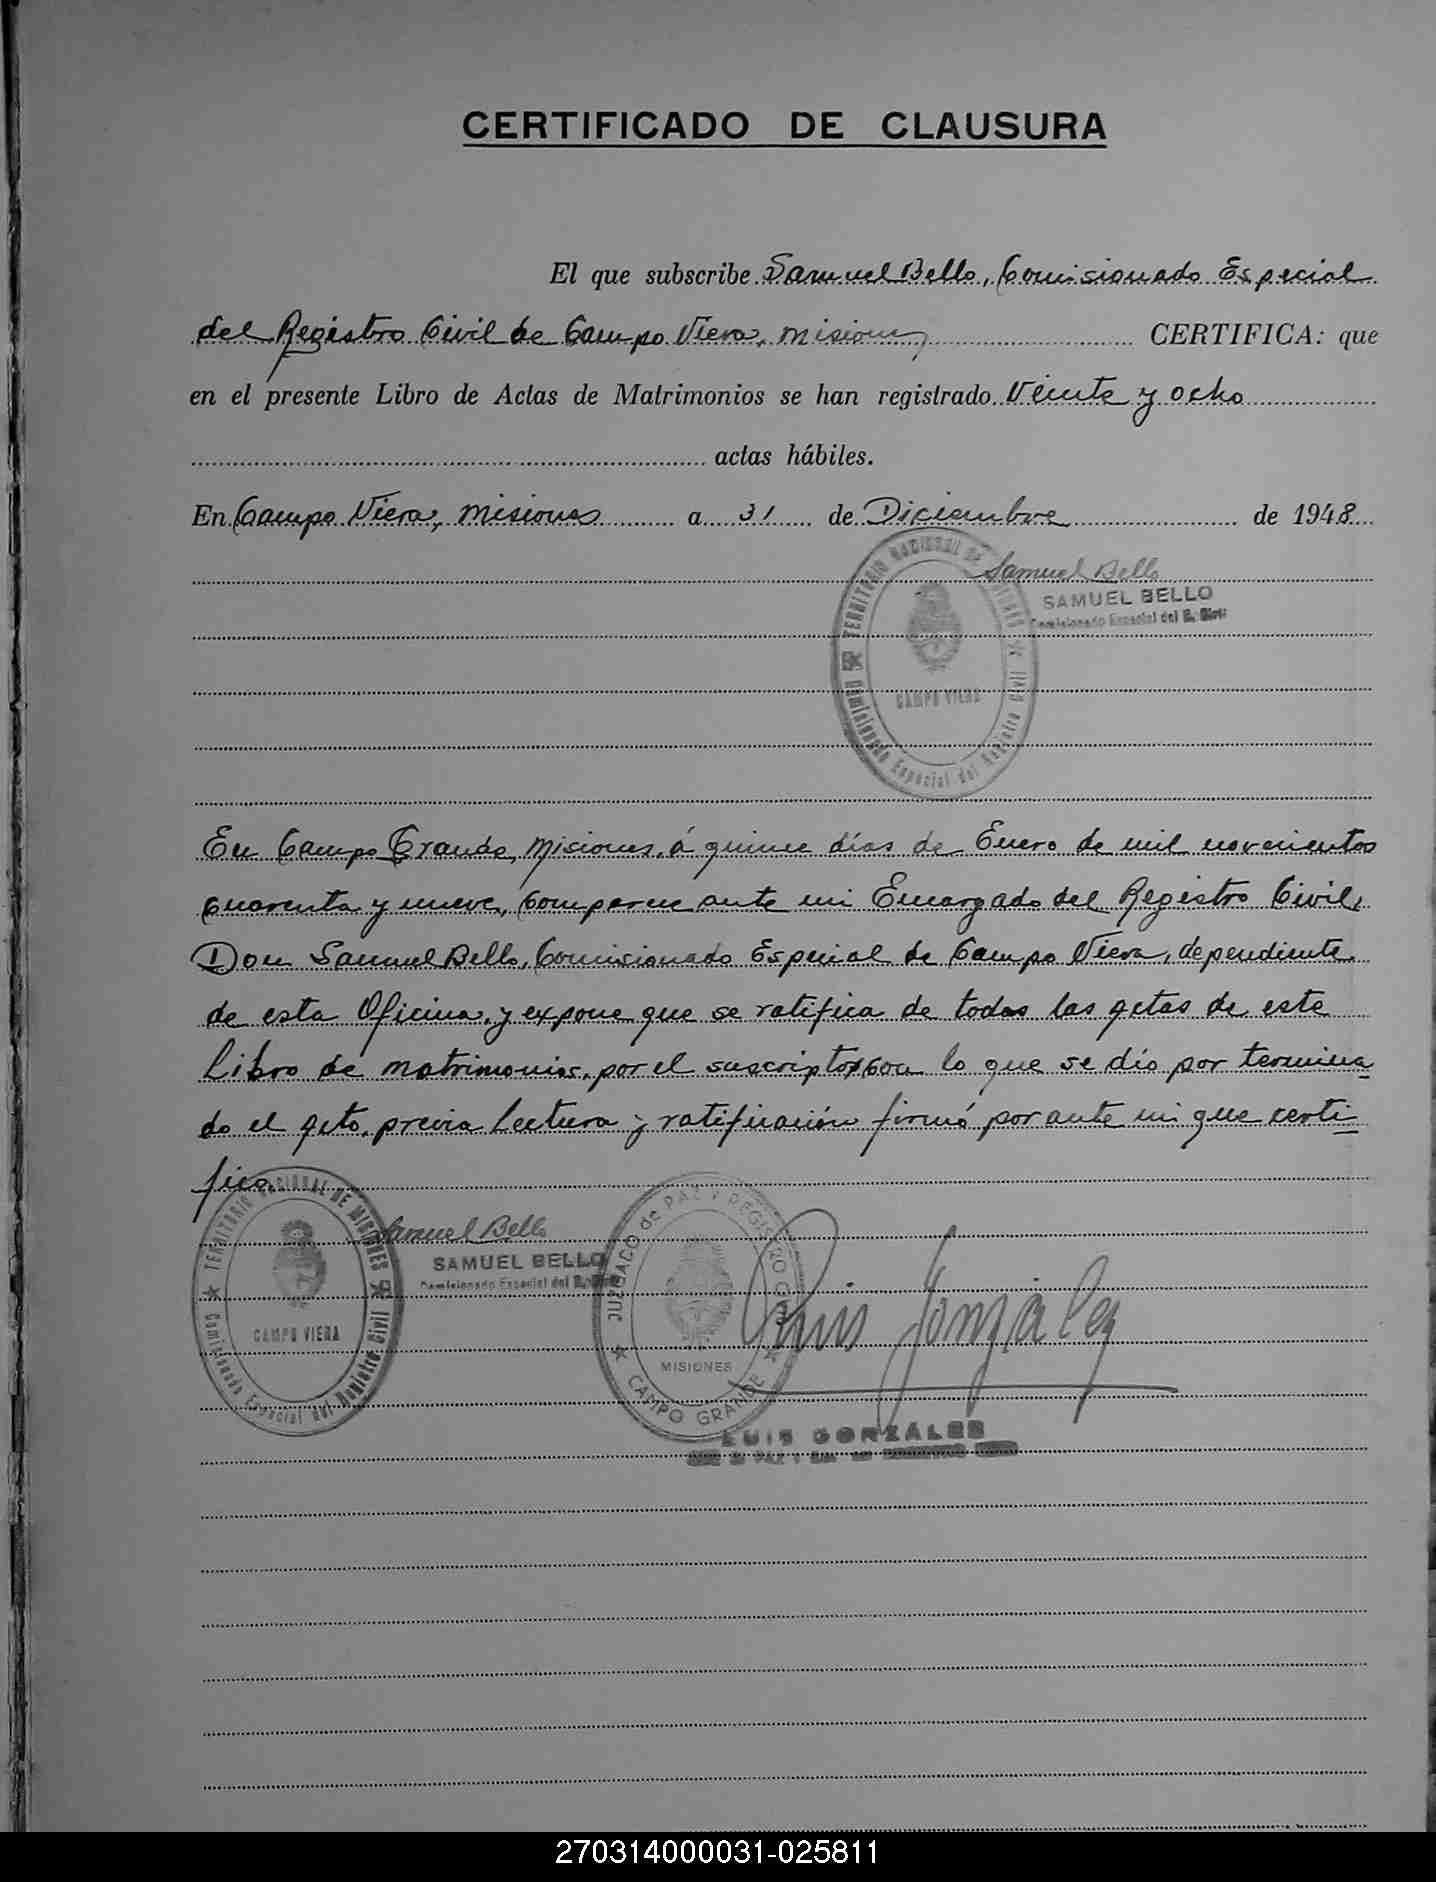 CERTIFICADO DE CLAUSURA
El que subscribe Samuel Bello, Comisionado Especial
del Registro Civil de Campo Viera, Misiones CERTIFICA: que
en el presente Libro de Actas de Matrimonios se han registrado Veinte y ocho
actas hábiles.
En Campo Viera, Misiones a 31 de Diciembre de 1948
Samuel Bello
SAMUEL BELLO
Comisionado Especial del R. Civil
TERRITORIO NACIONAL DE MISIONES
CAMPO VIERA
Comisionado Especial del Registro Civil
En Campo Grande, Misiones, á quince días de Enero de mil novecientos
cuarenta y nueve, comparece ante mi Encargado del Registro Civil,
Don Samuel Bello, Comisionado Especial de Campo Viera, dependiente
de esta Oficina, y expone que se ratifica de todas las actas de este
Libro de matrimonios, por el suscripto, con lo que se dio por termina
do el acto, previa lectura y ratificación firmó por ante mi que certi
fico.
TERRITORIO NACIONAL DE MISIONES
CAMPO VIERA
Comisionado Especial del Registro Civil
Samuel Bello
SAMUEL BELLO
Comisionado Especial del R. Civil
JUZGADO de PAZ Y REGISTRO CIVIL
MISIONES
CAMPO GRANDE
Luis Gonzalez
LUIS GONZALES
270314000031-025811